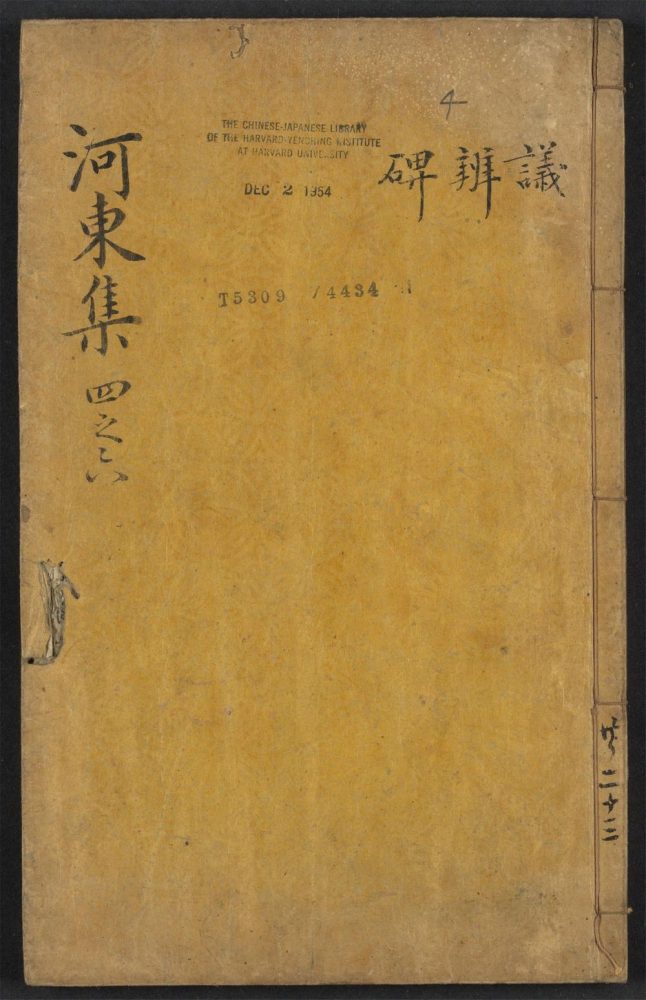 河東集 四之六
4
議 辨 碑
THE CHINESE-JAPANESE LIBRARY
OF THE HARVARD-YENCHING INSTITUTE
AT HARVARD UNIVERSITY
DEC 2 1954
T5309 /4434
共二十二